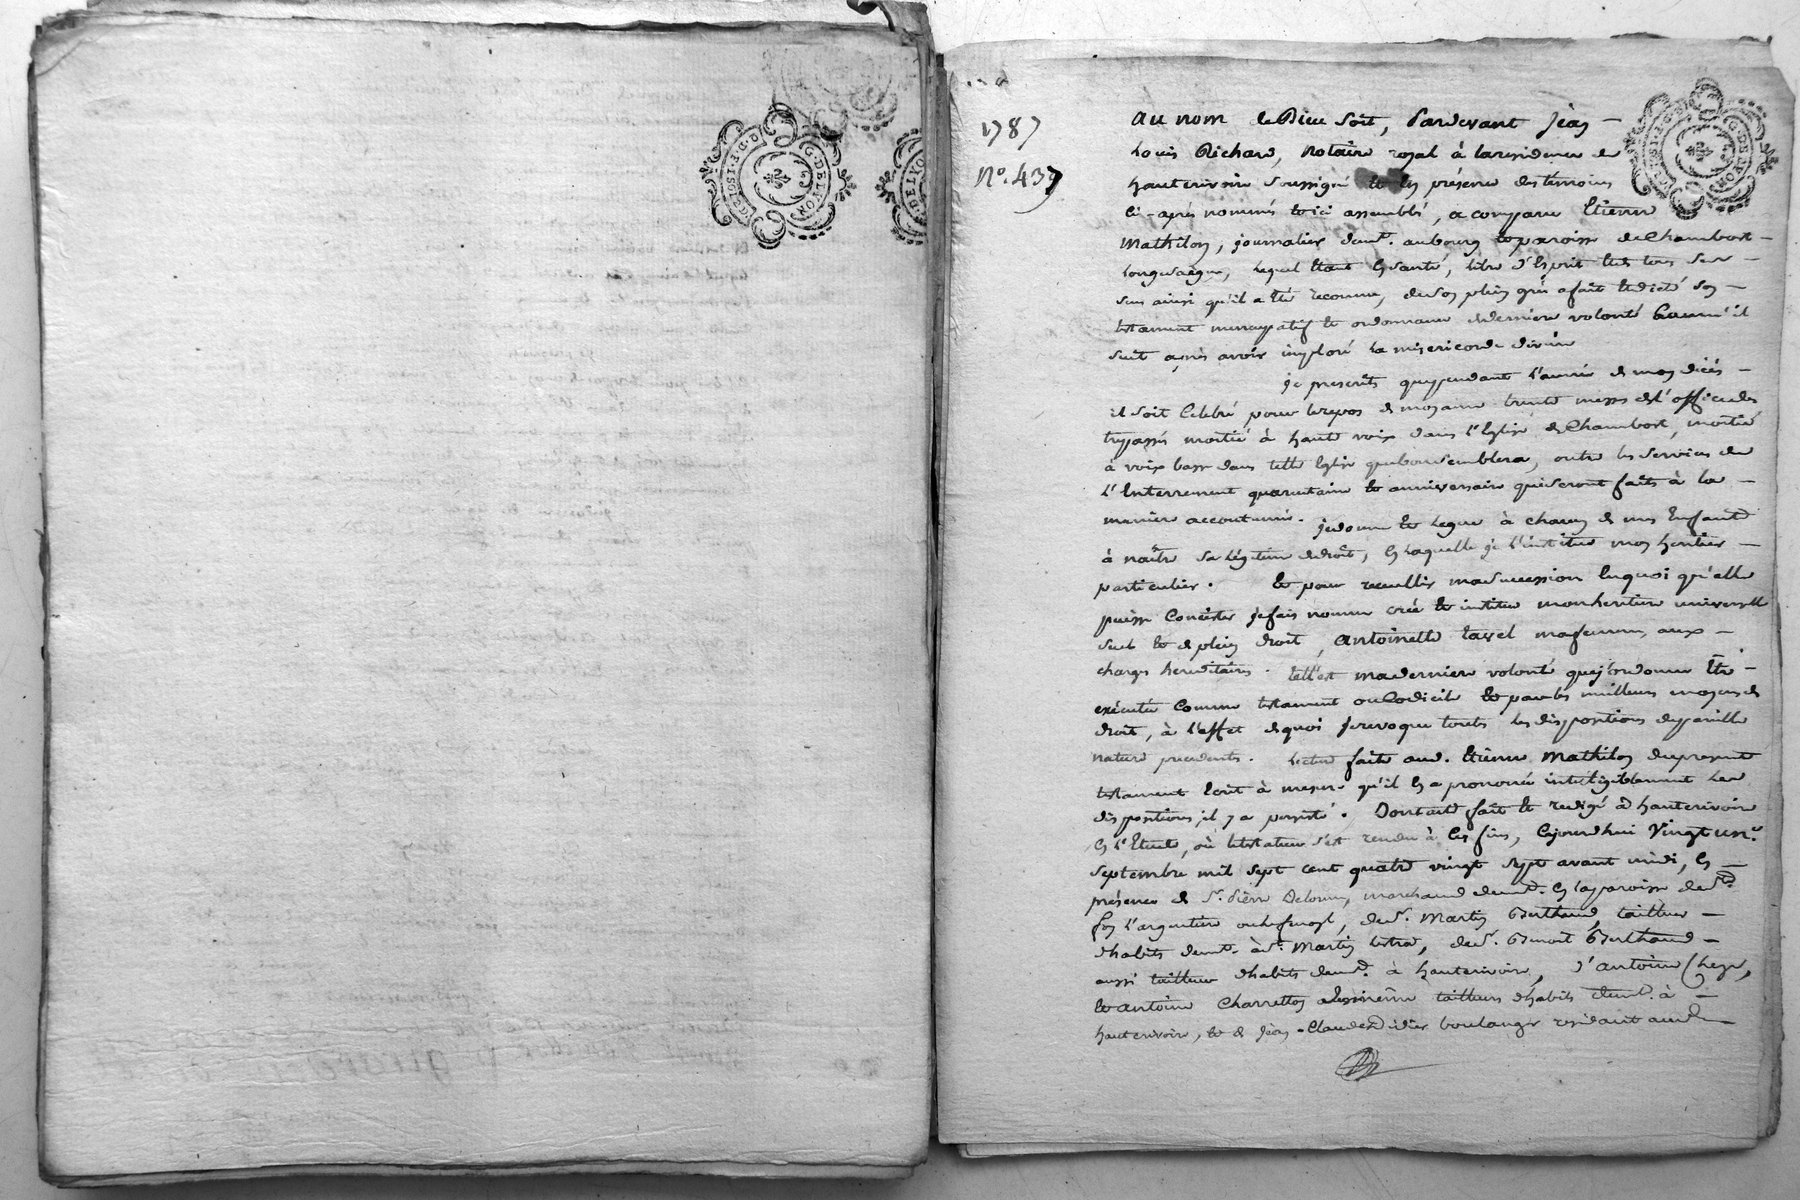 G.DE LYON
1787
N.o 437
au nom de Dieu soit, Pardevant Jean
Louis Richard, notaire royal à la residence de
hauterivoire soussigné et en présence des temoins
ci-après nommés et ici assemblés, a comparu Etienne
Mathelon, journalier demt. au bourg et paroisse de Chambost
Longuesaigne, lequel Etant En santé, libre d'Esprit Et de tous ses
sens ainsi qu'il a Eté reconnu, de son plein gré a fait Et dicté son
testament nuncupatif et ordonnance de derniere volonté Comm'il
suit après avoir imploré La misericorde divine
je prescrits que pendant l'année de mon décès
il soit Celebré pour le repos de mon ame trente messes de l'office des
trepassés moitié à haute voix dans l'Eglise de Chambost, moitié
à voix basse dans telle Eglise que bon semblera, outre les services de
L'Enterrement quarantaine et anniversaire qui seront faits à la
maniere accoutumée. je donne et Legue à chacun de mes Enfants
à naître sa Légitime de droit, En laquelle je l'institue mon heritier
particulier. Et pour recueillir ma succession En quoi qu'elle
puisse Concister je fais nomme crée et institue mon heritiere universelle
seule et de plein droit, antoinette tavel ma femme, aux
charges hereditaires. telle est ma derniere volonté que j'ordonne Etre
exécutée Comme testament ou Codicile et par les meilleurs moyens de
droit, à l'effet de quoi je revoque toutes les dispositions de pareille
nature precedents. Lecture faite aud. Etienne Mathelon du present
testament Ecrit à mesure qu'il En a prononcé intelligiblement Les
dispositions, il y a persisté. Dont acte fait et redigé à hauterivoire
En l'Etude, où le testateur s'est rendu à Ces fins, Cejourdhui Vingt un.e
septembre mil sept cent quatre vingt sept avant midi, En
présence de S.r Pierre Delorme, marchand demt. En la paroisse de St.
foy l'argentiere, de S.r Martin Berthaud, tailleur
d'habits demt. à St. Martin Lestra, de S.r Benoit Berthaud
aussi tailleur d'habits demt. à hauterivoire, d'antoine
et antoine Charretton tailleurs d'habits demt. à
hauterivoire, et de Jean-Claude Didier boulanger residant aud.